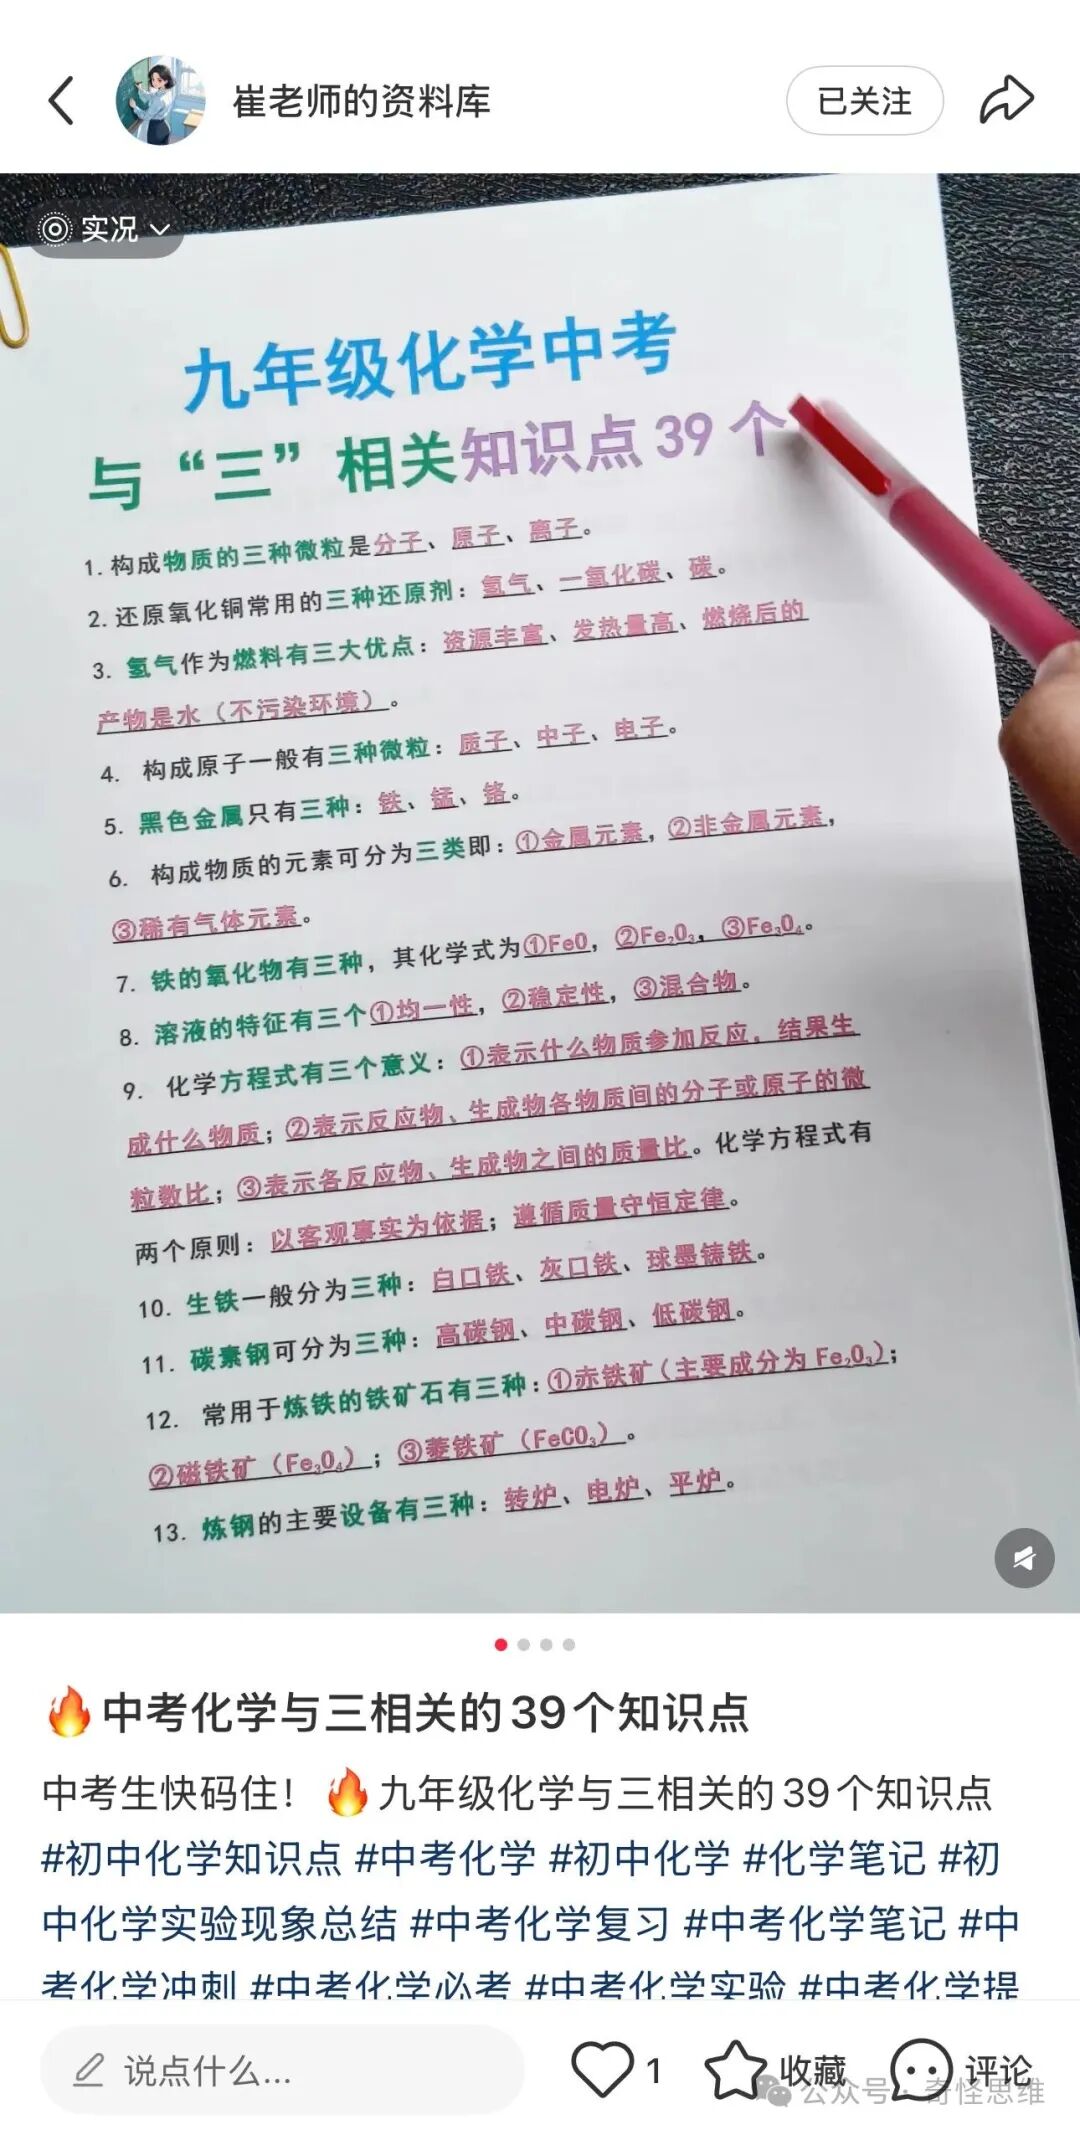 崔老师的资料库
已关注
实况
九年级化学中考
与“三”相关知识点39个
1.构成物质的三种微粒是分子、原子、离子。
2.还原氧化铜常用的三种还原剂：氢气、一氧化碳、碳。
3. 氢气作为燃料有三大优点：资源丰富、发热量高、燃烧后的
产物是水（不污染环境）。
4. 构成原子一般有三种微粒：质子、中子、电子。
5. 黑色金属只有三种：铁、锰、铬。
6. 构成物质的元素可分为三类即：①金属元素，②非金属元素，
③稀有气体元素。
7. 铁的氧化物有三种，其化学式为①FeO，②Fe₂O₃，③Fe₃O₄。
8. 溶液的特征有三个①均一性，②稳定性，③混合物。
9. 化学方程式有三个意义：①表示什么物质参加反应，结果生
成什么物质；②表示反应物、生成物各物质间的分子或原子的微
粒数比；③表示各反应物、生成物之间的质量比。化学方程式有
两个原则：以客观事实为依据；遵循质量守恒定律。
10. 生铁一般分为三种：白口铁、灰口铁、球墨铸铁。
11. 碳素钢可分为三种：高碳钢、中碳钢、低碳钢。
12. 常用于炼铁的铁矿石有三种：①赤铁矿（主要成分为 Fe₂O₃）；
②磁铁矿（Fe₃O₄）；③菱铁矿（FeCO₃）。
13. 炼钢的主要设备有三种：转炉、电炉、平炉。
🔥中考化学与三相关的39个知识点
中考生快码住！🔥九年级化学与三相关的39个知识点
#初中化学知识点 #中考化学 #初中化学 #化学笔记 #初
中化学实验现象总结 #中考化学复习 #中考化学笔记 #中
考化学冲刺 #中考化学必考 #中考化学实验 #中考化学提
说点什么...
1
收藏
评论
公众号·奇怪思维